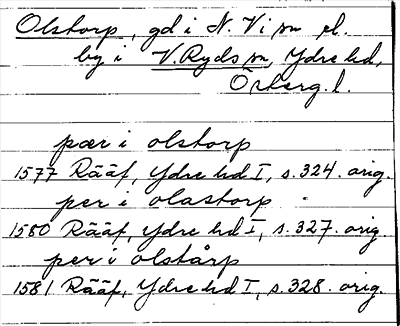 Olstorp, gd i N. Vi sn el.
by i V. Ryds sn, Ydre hd,
Österg. l.
pær i olstorp
1577 Rääf, Ydre hd I, s. 324. orig.
per i olastorp
1580 Rääf, Ydre hd I, s. 327. orig.
per i olstårp
1581 Rääf, Ydre hd I, s. 328. orig.